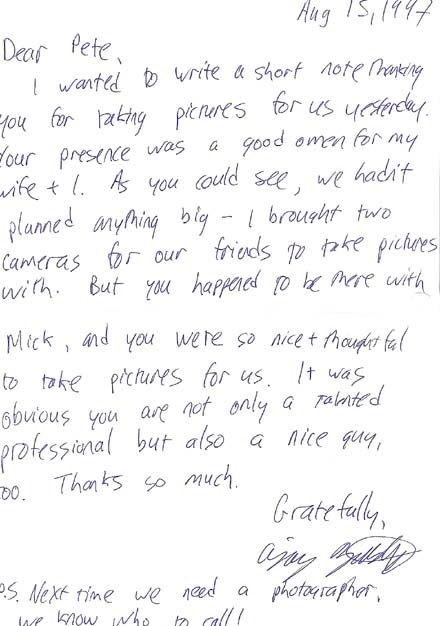 Aug 15, 1997
Dear Pete,
I wanted to write a short note thanking
you for taking pictures for us yesterday.
Your presence was a good omen for my
wife + I. As you could see, we hadn't
planned anything big – I brought two
cameras for our friends to take pictures
with. But you happened to be there with
Mick, and you were so nice + thoughtful
to take pictures for us. It was
obvious you are not only a talented
professional but also a nice guy,
too. Thanks so much.
Gratefully,
Ajay
P.S. Next time we need a photographer,
we know who to call!